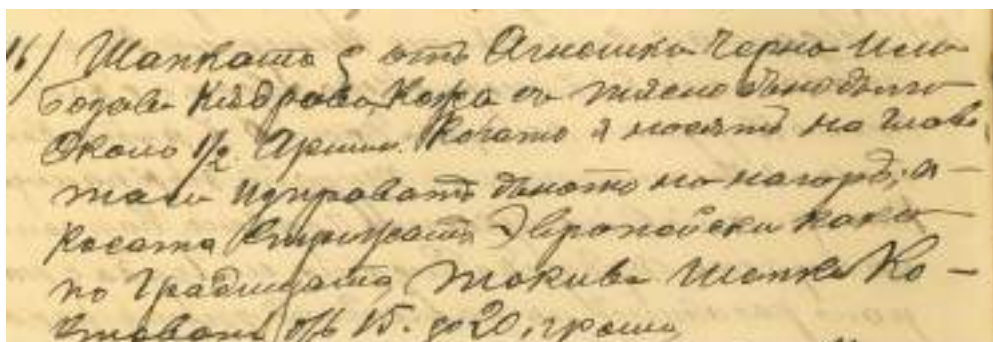 16) Шапката ѐ отъ Агнешка Черна или
Бозава Къдрава, Кожа съ тясно дъно дълга
Около 1/2. Аршин. Когато я носятъ на Глава
та си изправатъ дъното на нагоръ, а
Косата стрижатъ Эвропейски како
по Градищата, такива шапки Ко-
штоватъ отъ 15. до 20, гроша